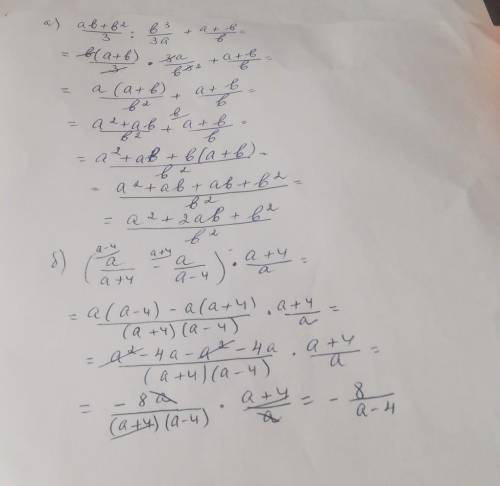 а) (ab+b²)/3 : b³/3a + (a+b)/b =
= b(a+b)/3 · 3a/b³ ² + (a+b)/b =
= a(a+b)/b² + (a+b)/b =
= (a²+ab)/b² + ᵇ (a+b)/b =
= (a²+ab+b(a+b))/b² =
= (a²+ab+ab+b²)/b² =
= (a²+2ab+b²)/b²
б) (ᵃ⁻⁴ a/(a+4) − ᵃ⁺⁴ a/(a-4)) · (a+4)/a =
= (a(a-4)-a(a+4))/((a+4)(a-4)) · (a+4)/a =
= (a²-4a-a²-4a)/((a+4)(a-4)) · (a+4)/a =
= -8a/((a+4)(a-4)) · (a+4)/a = - 8/(a-4)